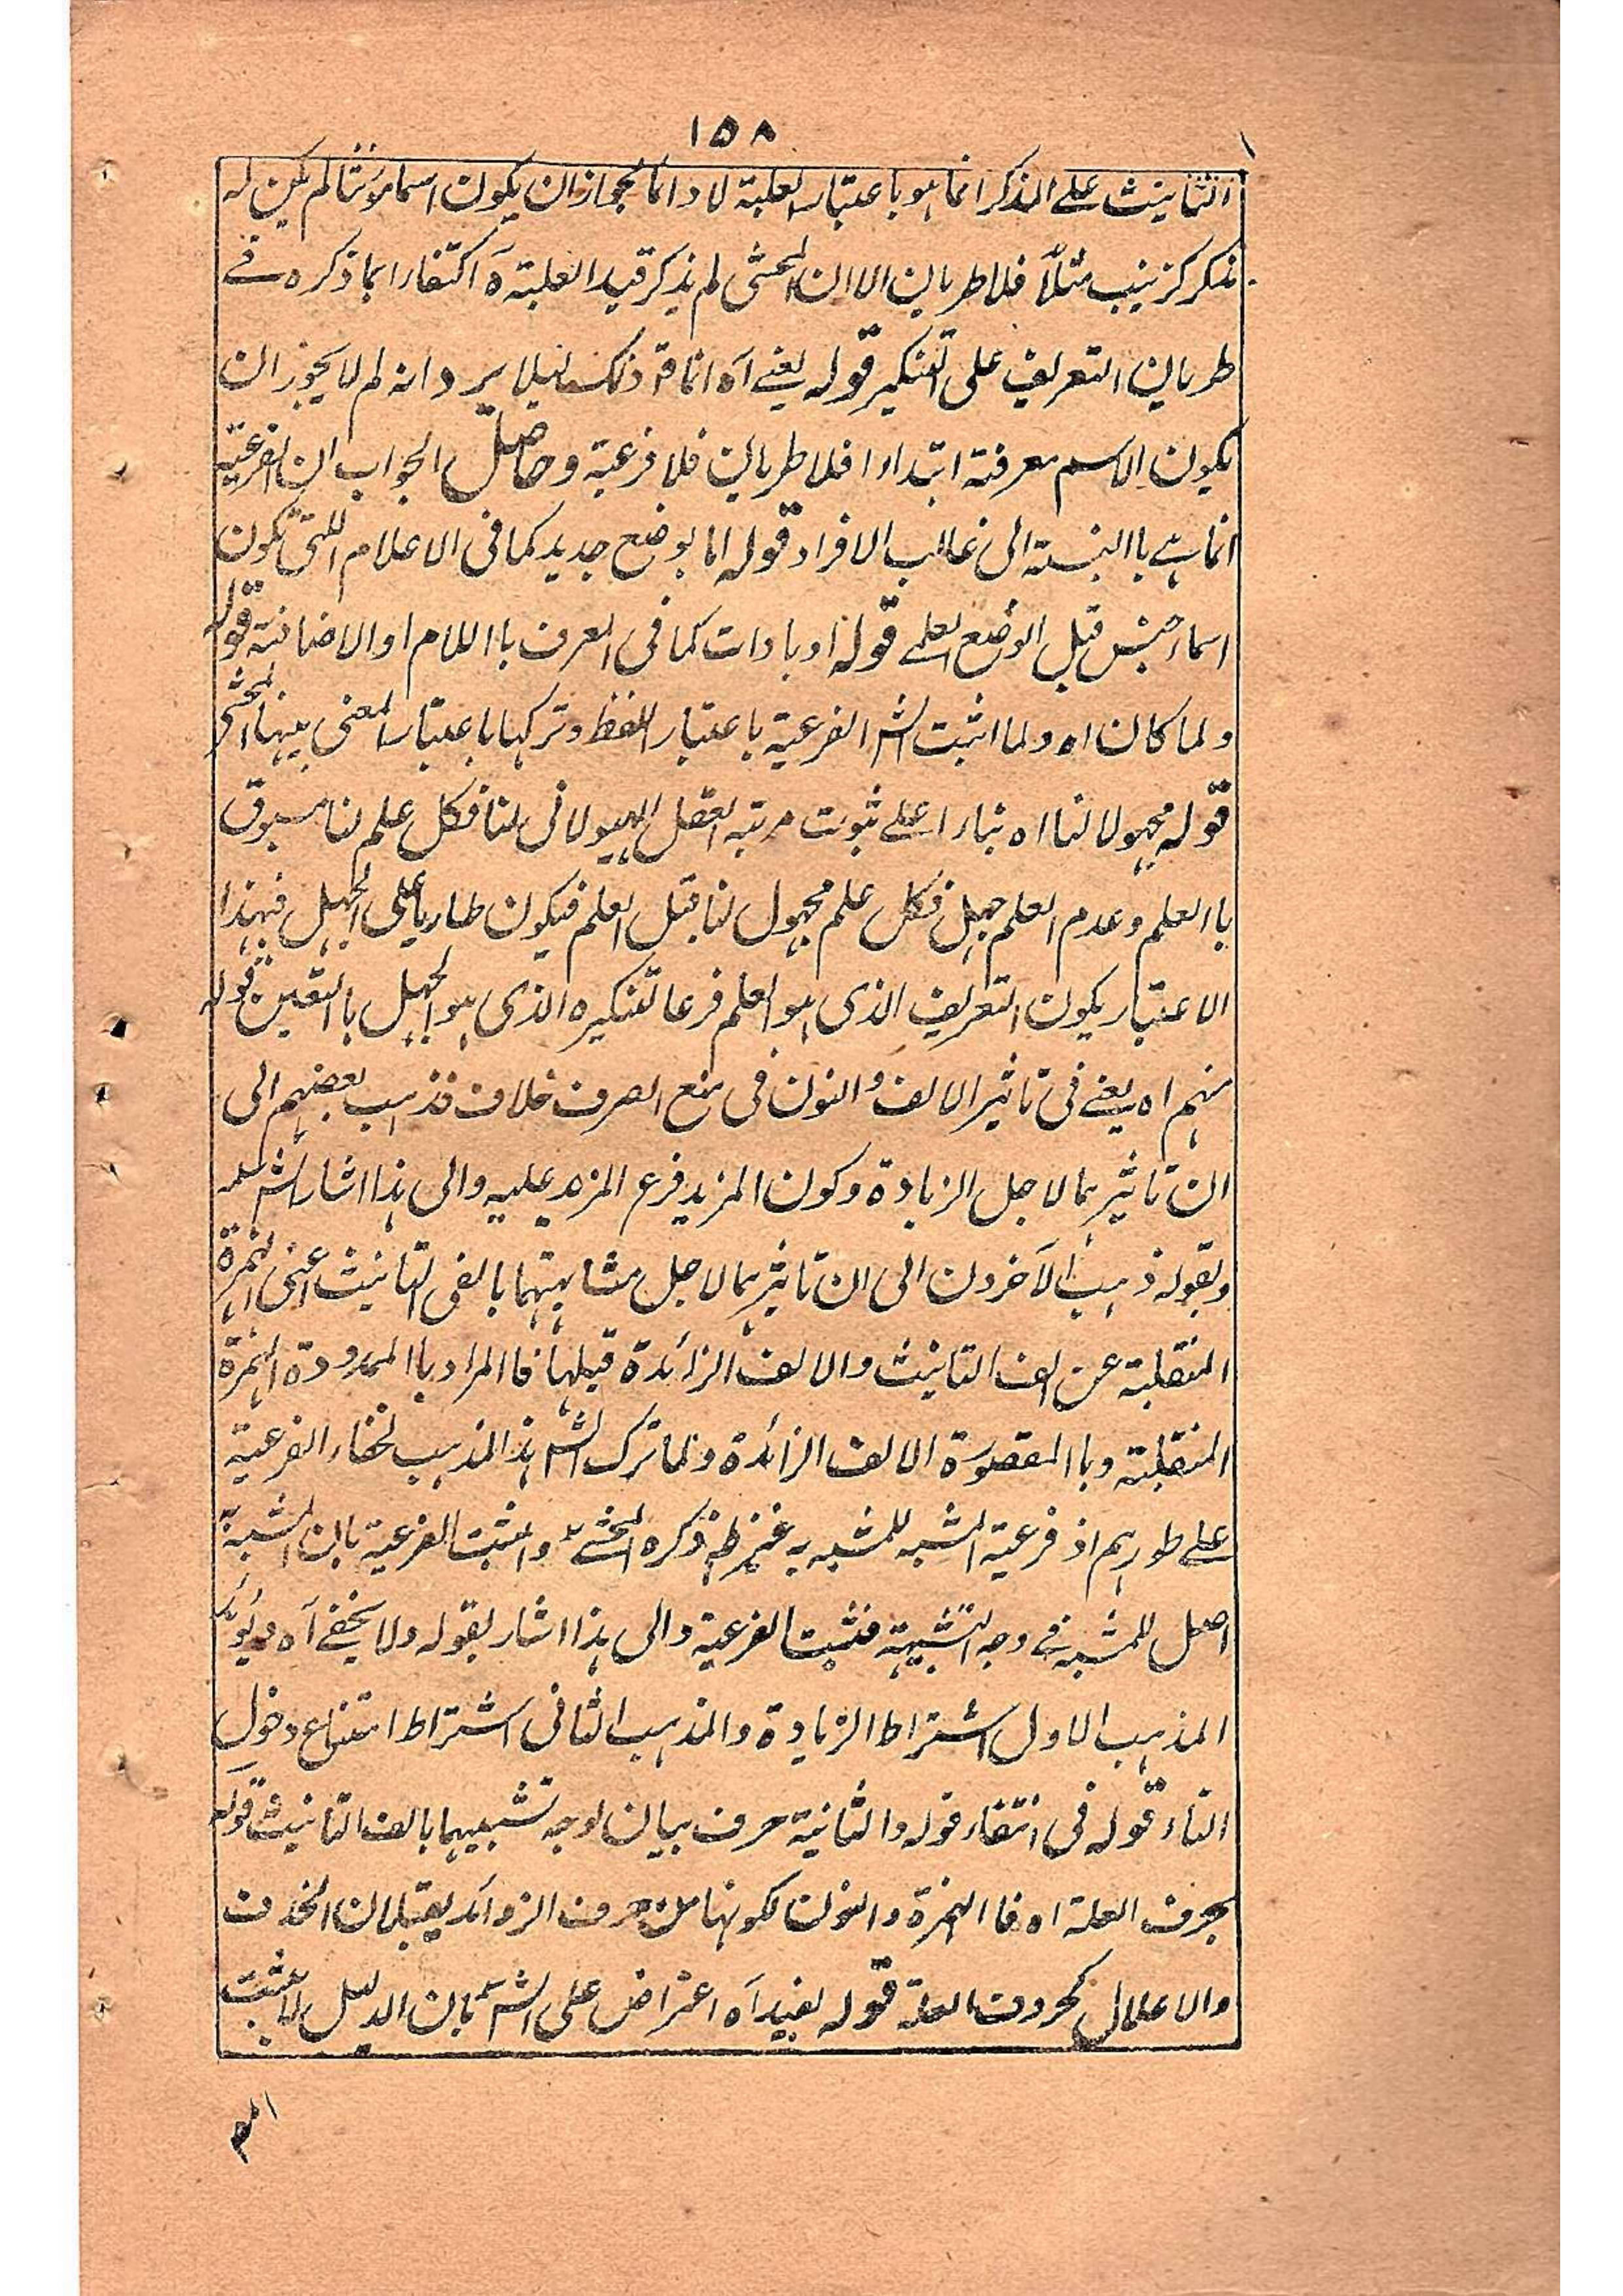 ١٥٨
التانيث على المذكر انما هو باعتبار الغلبة لا دائما لجواز ان يكون اسما مؤنثا لم يكن له
مذكر كزينب مثلاً فلا طريان الا ان المحشى لم يذكر قيد الغلبة آه اكتفاء بما ذكره فے
طريان التعريف على التنكير قوله يعنے آه انما قال ذلك لئلا يرد انه لم لا يجوز ان
يكون الاسم معرفة ابتداءا فلا طريان فلا فرعية وحاصل الجواب ان الفرعية
انما هے باالنسبة الى غالب الافراد قوله اما بوضع جديد كما فى الاعلام اللتى تكون
اسماء جنس قبل الوضع العلمے قوله او بادات كما فى المعرف باللام او الاضافة قوله
ولما كان اه ولما اثبت الشم الفرعية باعتبار اللفظ وتركها باعتبار المعنى بينها المحشى
قوله مجهولا لنا اه بناءا علے ثبوت مرتبه العقل الهيولانى لنا فكل علم لنا مسبوق
باالعلم وعدم العلم جهل فكل علم مجهول لنا قبل العلم فيكون طاريا على الجهل فبهذا
الاعتبار يكون التعريف الذى هو العلم فرعا لتنكيره الذى هو الجهل باالتعين قوله
منهم اه يعنے فى تاثير الالف والنون فى منع الصرف خلاف فذهب بعضهم الى
ان تاثيرهما لاجل الزيادة وكون المزيد فرع المزيد عليه والى هذا اشار الشم
وبقوله ذهب الآخرون الى ان تاثيرهما لاجل مشابهتهما بالفى التانيث اعنى الهمزة
المنقلبة عن الف التانيث والالف الزائدة قبلها فاالمراد باالممدودة الهمزة
المنقلبة وباالمقصورة الالف الزائدة ولما ترك الشم هذا المذهب لخفاء الفرعية
علے طورهم اذ فرعية المشبه للمشبه به غير ظ ذكره المحشے واثبت الفرعية بان المشبه به
اصل للمشبه فے وجه التشبيه فتثبت الفرعية والى هذا اشار بقوله ولا يخفے آه ويؤيد
المذهب الاول اشتراط الزيادة والمذهب الثانى اشتراط امتناع دخول
التاء قوله فى انتفاء قوله والثانية حرف بيان لوجه تشبيهما بالف التانيث قوله
بحرف العلة اه فاالهمزة والنون لكونها من حروف الزوائد يقبلان الحذف
والاعلال كحروف العلة قوله يفيد آه اعتراض على الشم بان الدليل لا يثبت